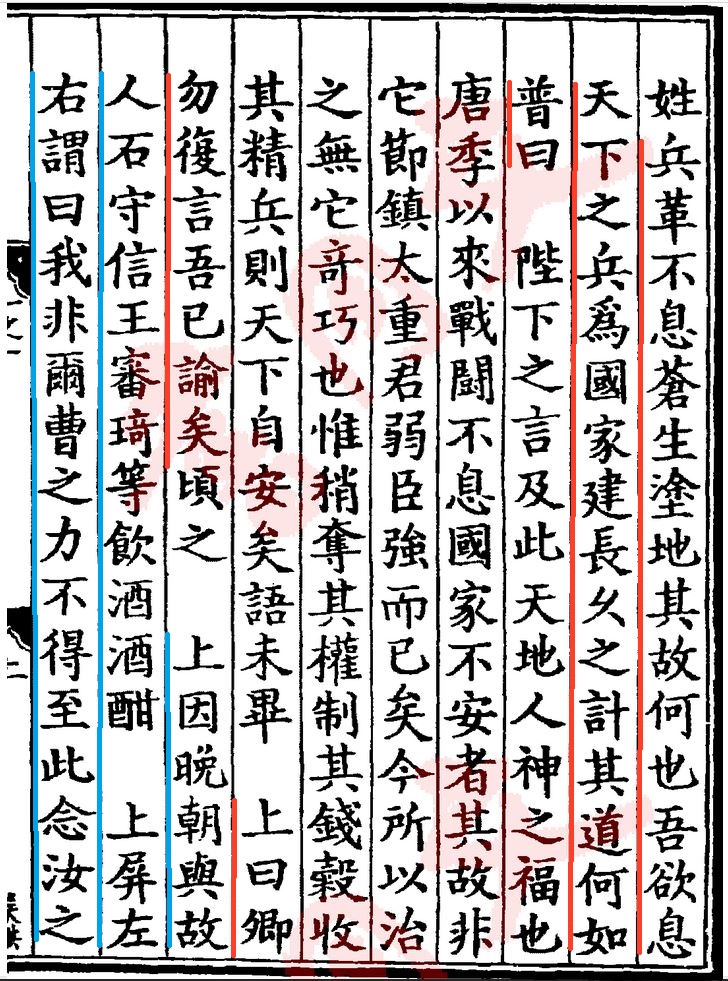 姓兵革不息蒼生塗地其故何也吾欲息
天下之兵爲國家建長久之計其道何如
普曰 陛下之言及此天地人神之福也
唐季以來戰鬭不息國家不安者其故非
它節鎮太重君弱臣強而已矣今所以治
之無它奇巧也惟稍奪其權制其錢穀收
其精兵則天下自安矣語未畢 上曰卿
勿復言吾已諭矣頃之 上因晚朝與故
人石守信王審琦等飲酒酒酣 上屏左
右謂曰我非爾曹之力不得至此念汝之